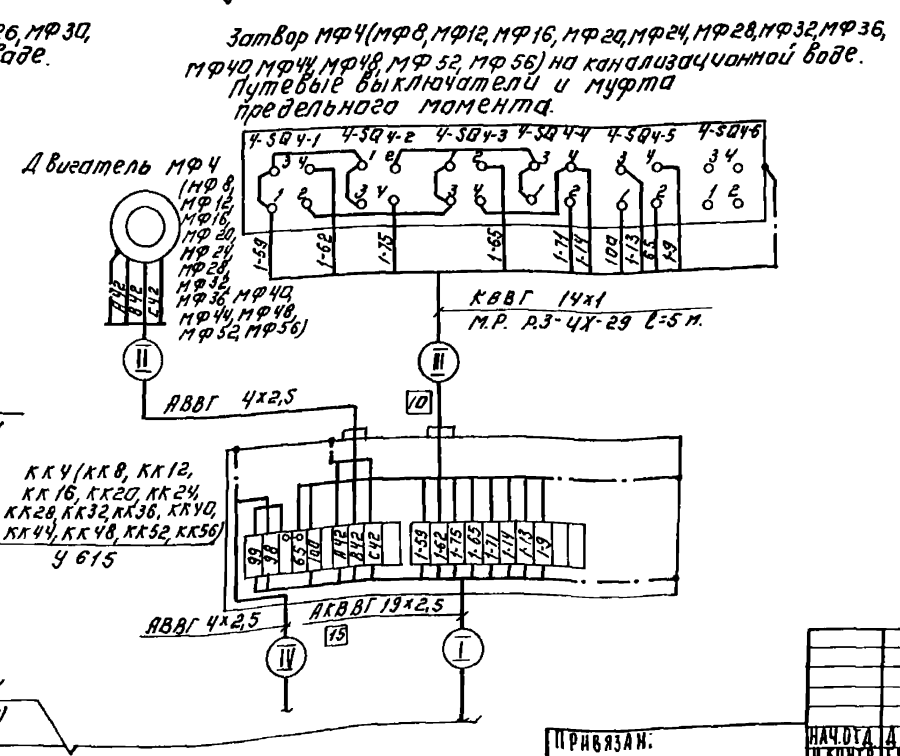 26, МФ30,
Затвор МФ4(МФ8,МФ12,МФ16,МФ20,МФ24,МФ28,МФ32,МФ36,
МФ40,МФ44,МФ48,МФ52,МФ56) на канализационной воде.
Путевые выключатели и муфта
предельного момента.
4-SQ4-1 4-SQ4-2 4-SQ4-3 4-SQ4-4 4-SQ4-5 4-SQ4-6
3 4 1 2 1 2 3 4 3 4 3 4
1 2 3 4 3 4 1 2 1 2 1 2
1-59 1-62 1-75 1-65 1-71 1-14 100 1-13 65 1-9
Двигатель МФ4
(МФ8,
МФ12,
МФ16,
МФ20,
МФ24,
МФ28,
МФ32,
МФ36 МФ40,
МФ44, МФ48,
МФ52, МФ56)
А42 В42 С42
КВВГ 14х1
М.Р. Р.3-4Х-29 ℓ=5 м.
II
III
10
АВВГ 4х2,5
КК4(КК8, КК12,
КК16, КК20, КК24,
КК28, КК32, КК36, КК40,
КК44, КК48, КК52, КК56)
У 615
99 98 65 100 А42 В42 С42 1-59 1-62 1-75 1-65 1-71 1-14 1-13 1-9
АВВГ 4х2,5
АКВВГ 19х2,5
15
IV
I
Привязан:
НАЧ.ОТД
Н.КОНТР